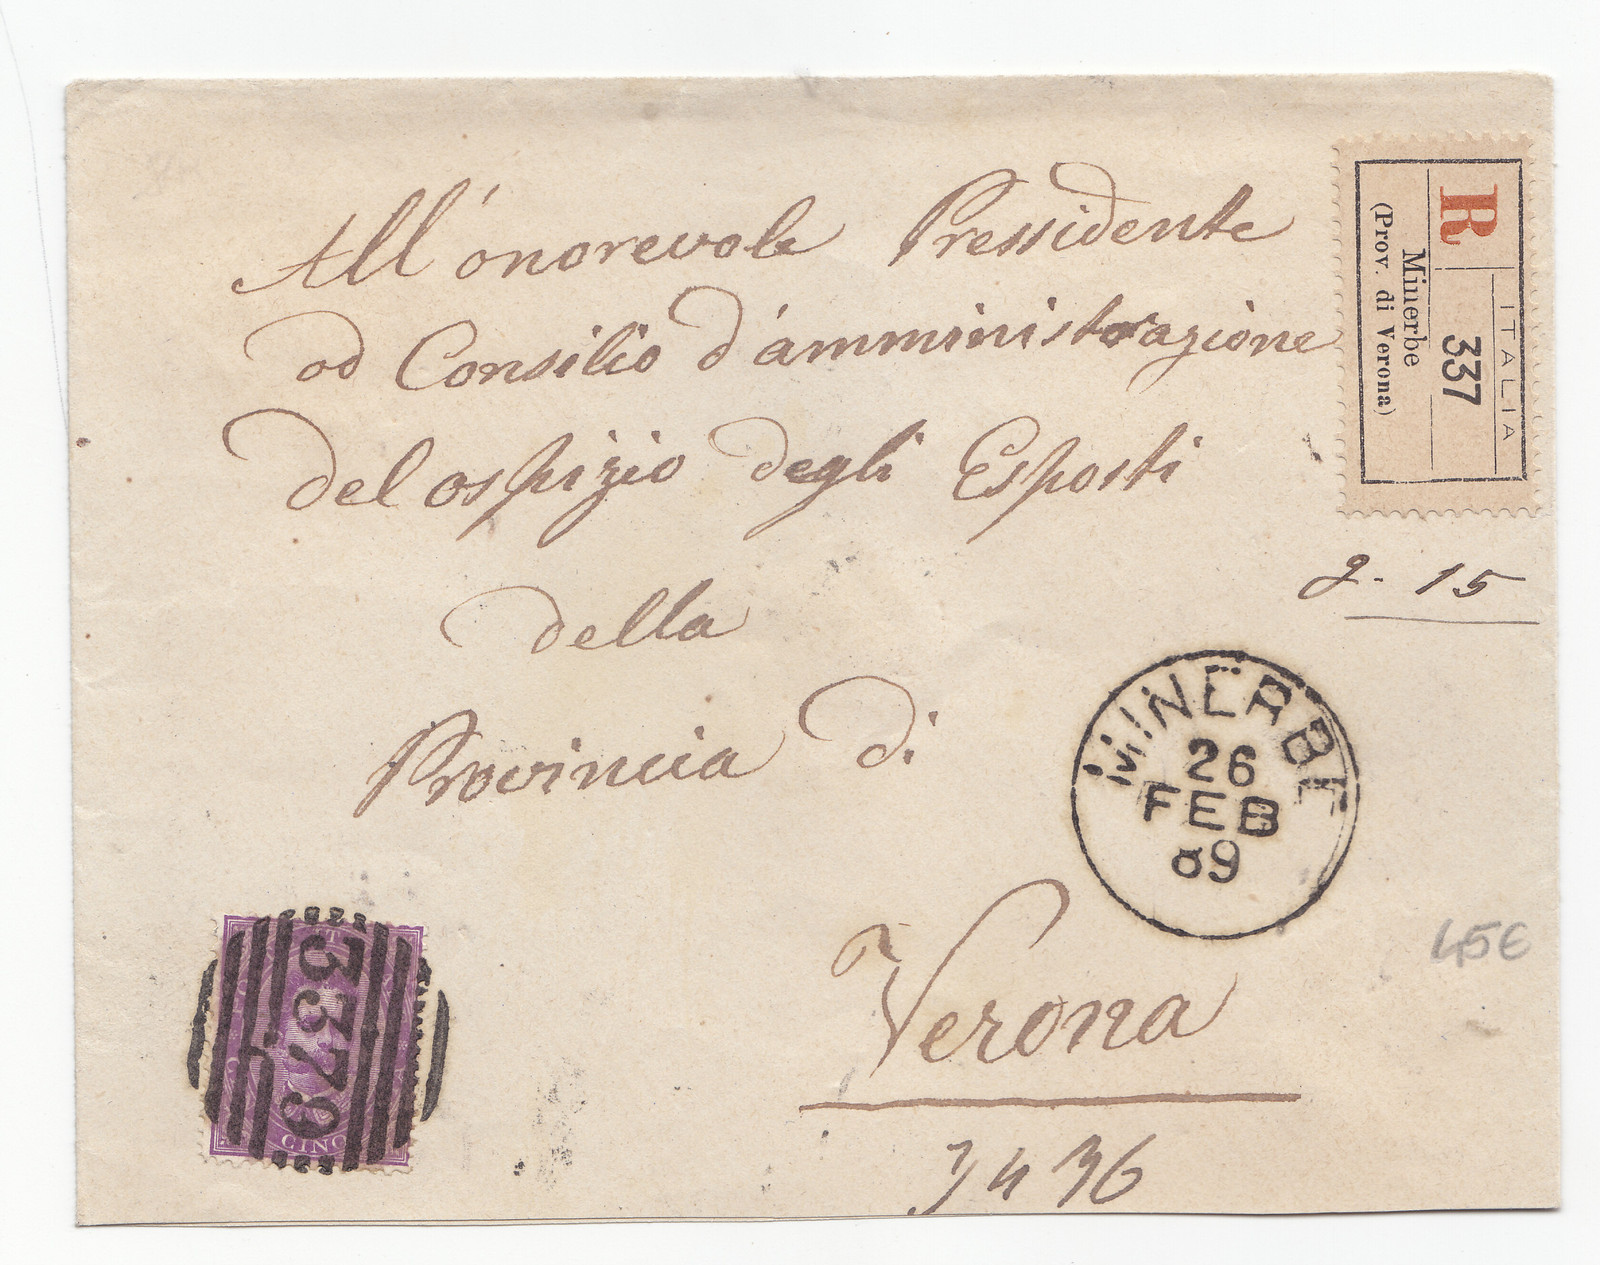 All'onorevole Pressidente
ad Consilio d'amministrazione
del ospizio degli Esposti
della
Provincia di
Verona
ITALIA
R
337
Minerbe
(Prov. di Verona)
g. 15
MINERBE
26
FEB
89
45€
3379
CINQ